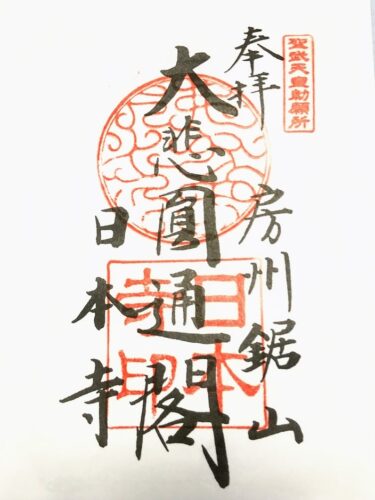 聖武天皇勅願所
奉拝
房州鋸山
大悲圓通閣
日本寺
日本寺印